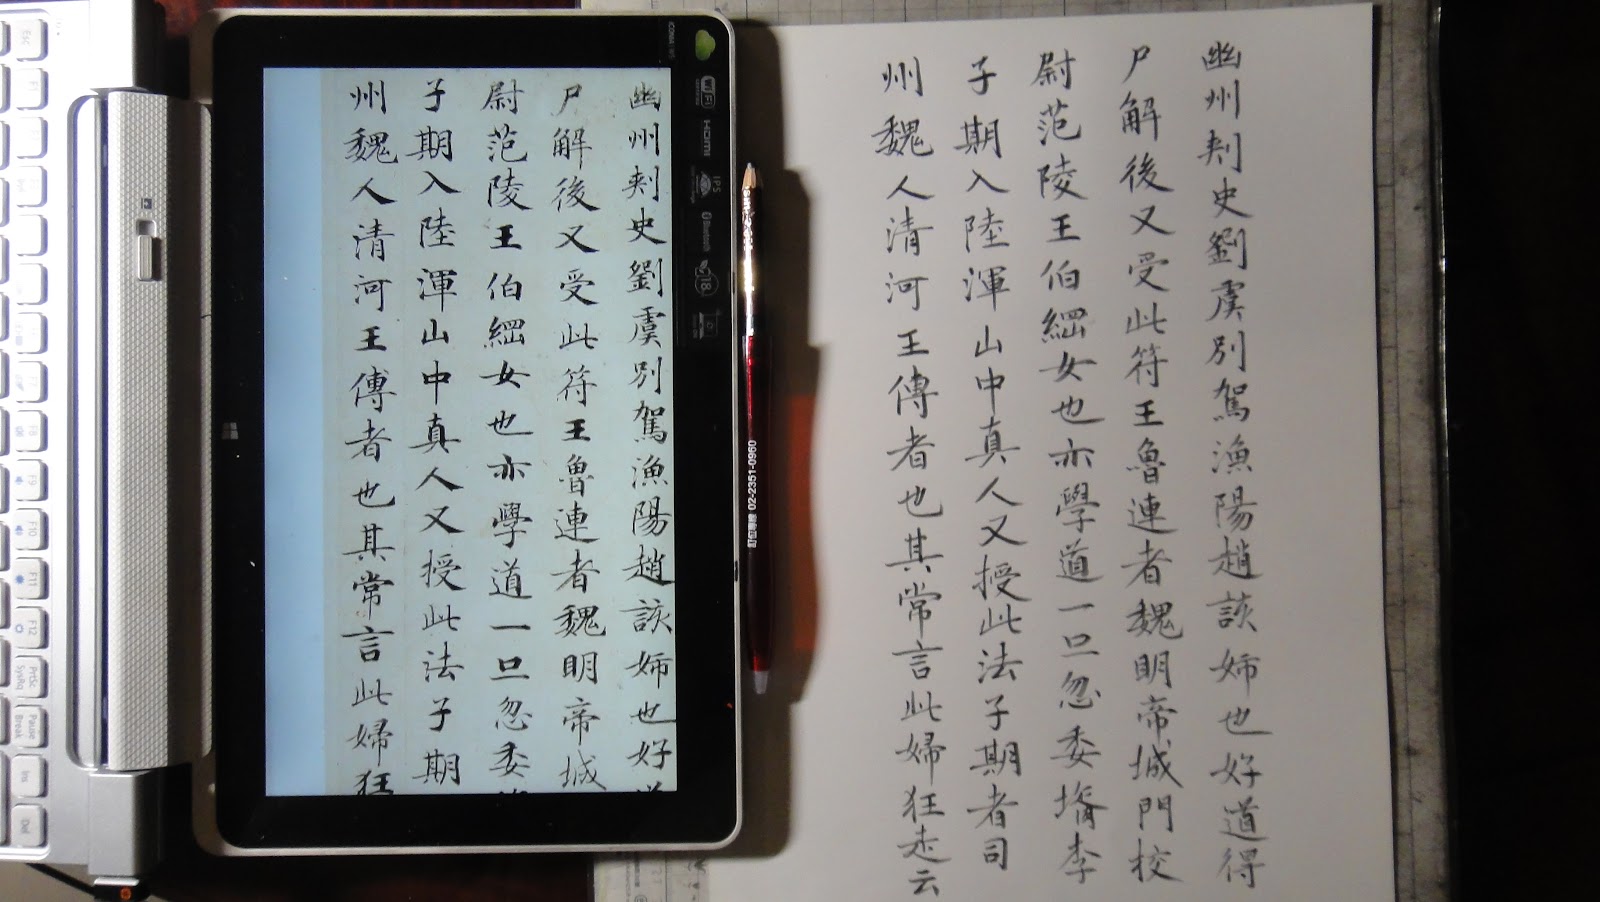 幽州刾史劉虞別駕漁陽趙該姉也好道得
尸解後又受此符王魯連者魏明帝城門校
尉范陵王伯綱女也亦學道一旦忽委壻李
子期入陸渾山中真人又授此法子期者司
州魏人清河王傳者也其常言此婦狂走云
幽州刾史劉虞別駕漁陽趙該姉也好
尸解後又受此符王魯連者魏明帝城
尉范陵王伯綱女也亦學道一旦忽委
子期入陸渾山中真人又授此法子期
州魏人清河王傳者也其常言此婦狂
WiFi
HDMI
IPS
Bluetooth
18
02-2351-0960
Esc
F1
F8
F9
F10
F11
F12
PrtSc
SysRq
Pause
Break
Ins
Del